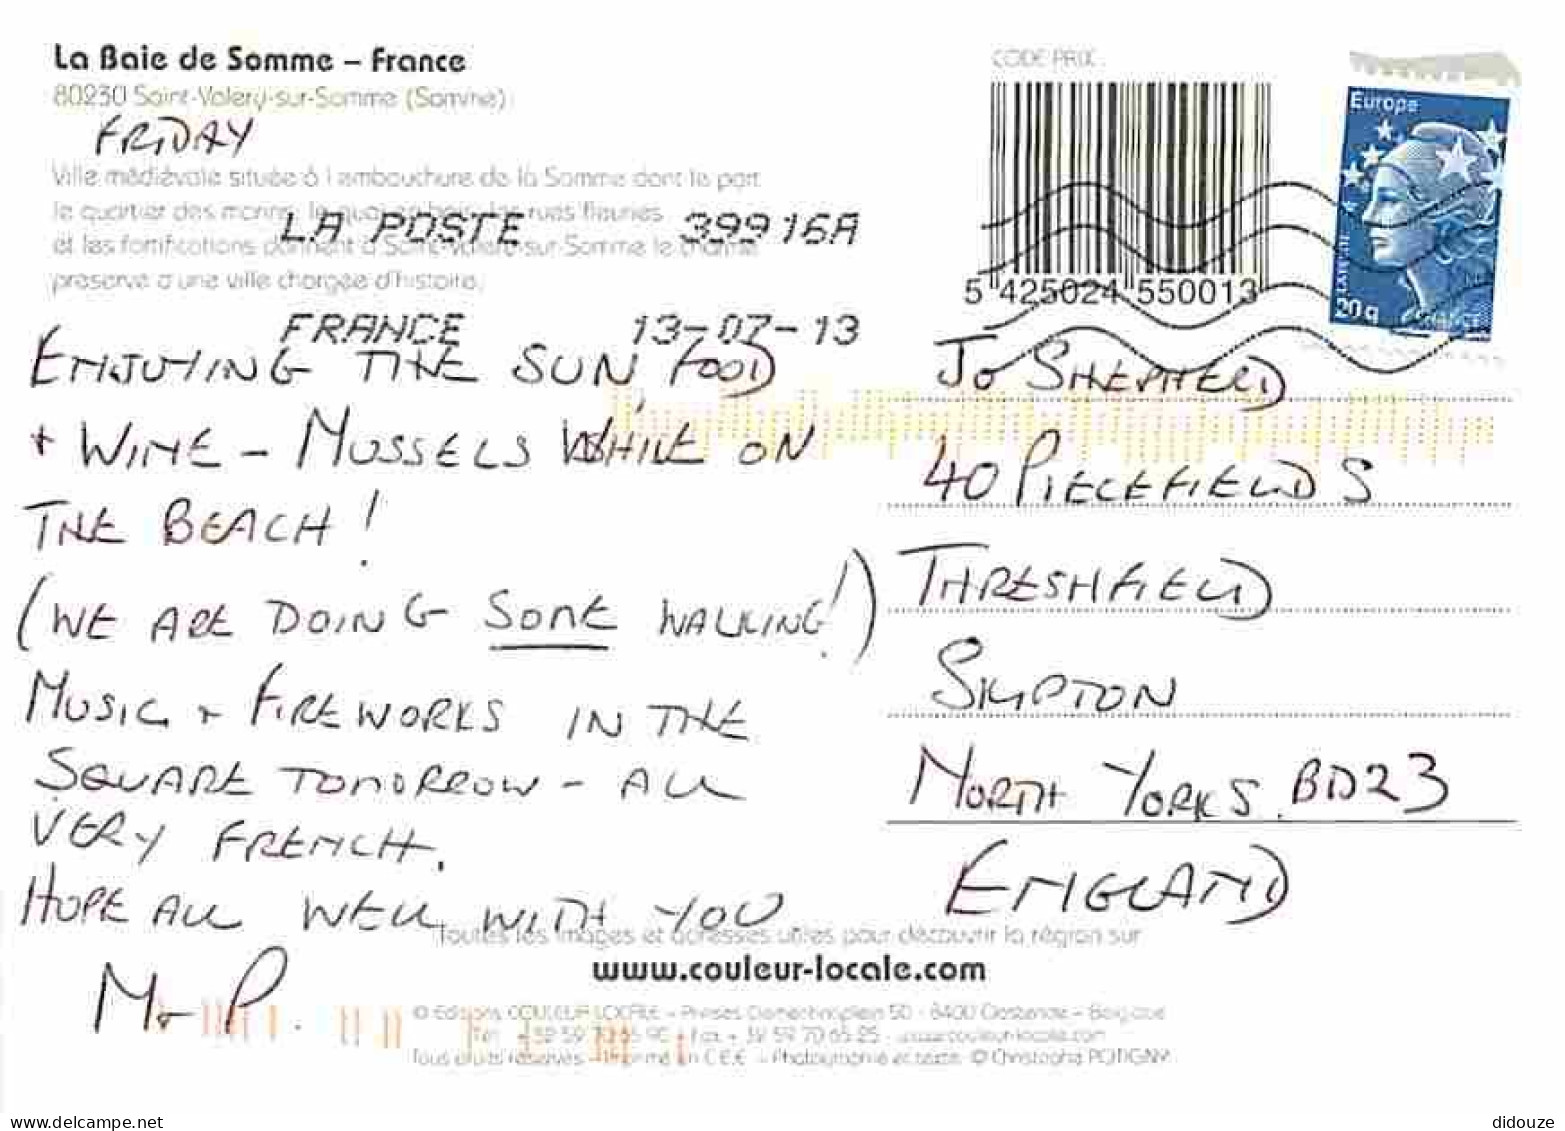 La Baie de Somme – France
80230 Saint-Valery-sur-Somme (Somme)
FRIDAY
Ville médiévale située à l'embouchure de la Somme dont le port
le quartier des marins, le quai en bois, les rues fleuries
et les fortifications donnent à Saint-Valery-sur-Somme le charme
préservé d'une ville chargée d'histoire.
LA POSTE 39916A
FRANCE 13-07-13
ENJOYING THE SUN, FOOD
+ WINE – MUSSELS WHILE ON
THE BEACH!
(WE ARE DOING SOME WALKING!)
MUSIC + FIREWORKS IN THE
SQUARE TOMORROW – ALL
VERY FRENCH.
HOPE ALL WELL WITH YOU
M + P.
CODE PRIX
5 425024 550013
Europe
20g
JO SHEPHERD
40 PIECEFIELDS
THRESHFIELD
SKIPTON
NORTH YORKS. BD23
ENGLAND
Toutes les images et adresses utiles pour découvrir la région sur
www.couleur-locale.com
© Editions COULEUR LOCALE – 50 - 8400 Oostende – Belgique
www.couleur-locale.com
Tous droits réservés – Imprimé en C.E.E. – Photographie et texte © Christophe POTIGNY
delcampe.net
didouze